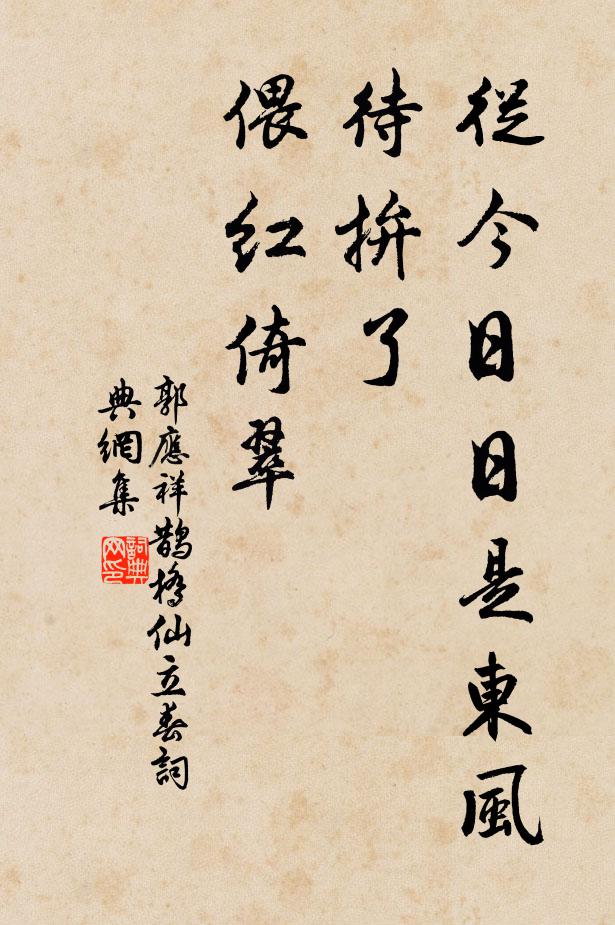 從今日日是東風
待拚了
偎紅倚翠
郭應祥鵲橋仙立春詞
典網集
詞典
网印